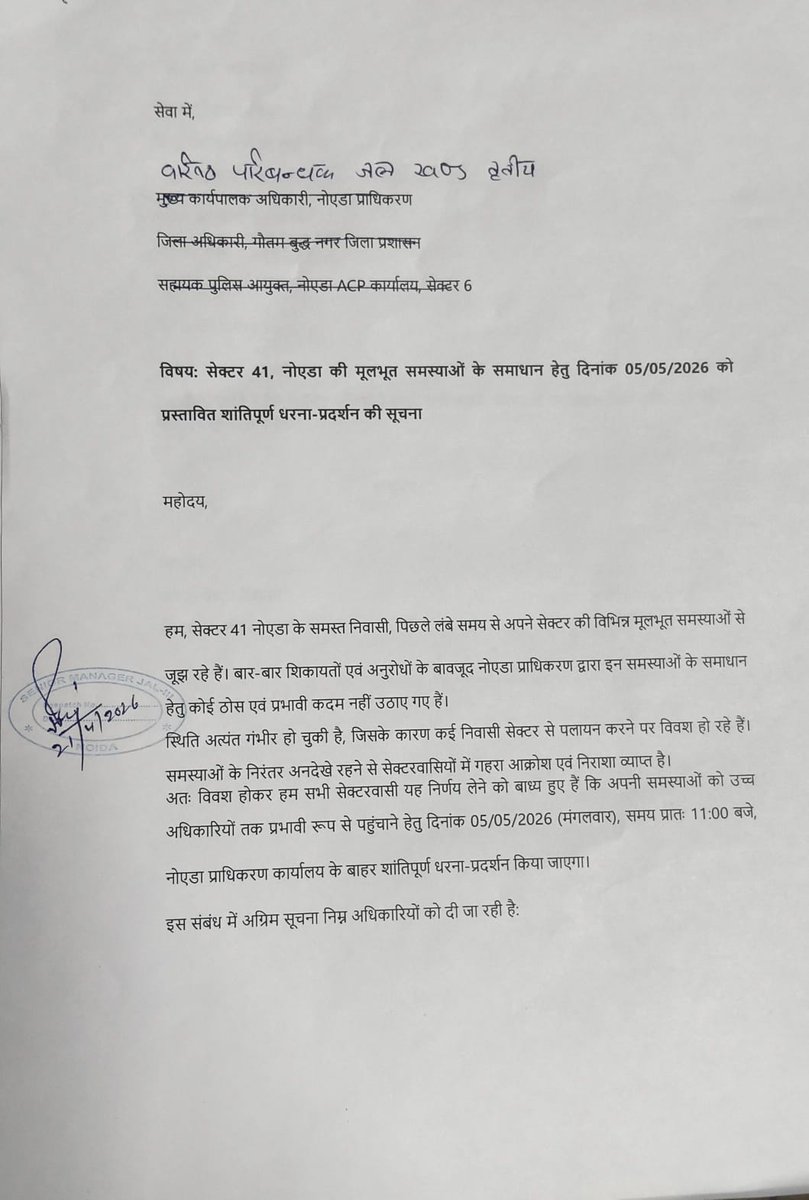 सेवा में,
वरिष्ठ परिबन्धक जल खण्ड तृतीय
मुख्य कार्यपालक अधिकारी, नोएडा प्राधिकरण
जिला अधिकारी, गौतम बुद्ध नगर जिला प्रशासन
सहायक पुलिस आयुक्त, नोएडा ACP कार्यालय, सेक्टर 6
विषय: सेक्टर 41, नोएडा की मूलभूत समस्याओं के समाधान हेतु दिनांक 05/05/2026 को
प्रस्तावित शांतिपूर्ण धरना-प्रदर्शन की सूचना
महोदय,
हम, सेक्टर 41 नोएडा के समस्त निवासी, पिछले लंबे समय से अपने सेक्टर की विभिन्न मूलभूत समस्याओं से
जूझ रहे हैं। बार-बार शिकायतों एवं अनुरोधों के बावजूद नोएडा प्राधिकरण द्वारा इन समस्याओं के समाधान
हेतु कोई ठोस एवं प्रभावी कदम नहीं उठाए गए हैं।
स्थिति अत्यंत गंभीर हो चुकी है, जिसके कारण कई निवासी सेक्टर से पलायन करने पर विवश हो रहे हैं।
समस्याओं के निरंतर अनदेखे रहने से सेक्टरवासियों में गहरा आक्रोश एवं निराशा व्याप्त है।
अतः विवश होकर हम सभी सेक्टरवासी यह निर्णय लेने को बाध्य हुए हैं कि अपनी समस्याओं को उच्च
अधिकारियों तक प्रभावी रूप से पहुंचाने हेतु दिनांक 05/05/2026 (मंगलवार), समय प्रातः 11:00 बजे,
नोएडा प्राधिकरण कार्यालय के बाहर शांतिपूर्ण धरना-प्रदर्शन किया जाएगा।
इस संबंध में अग्रिम सूचना निम्न अधिकारियों को दी जा रही है:
SENIOR MANAGER JAL-III
21/4/2026
NOIDA